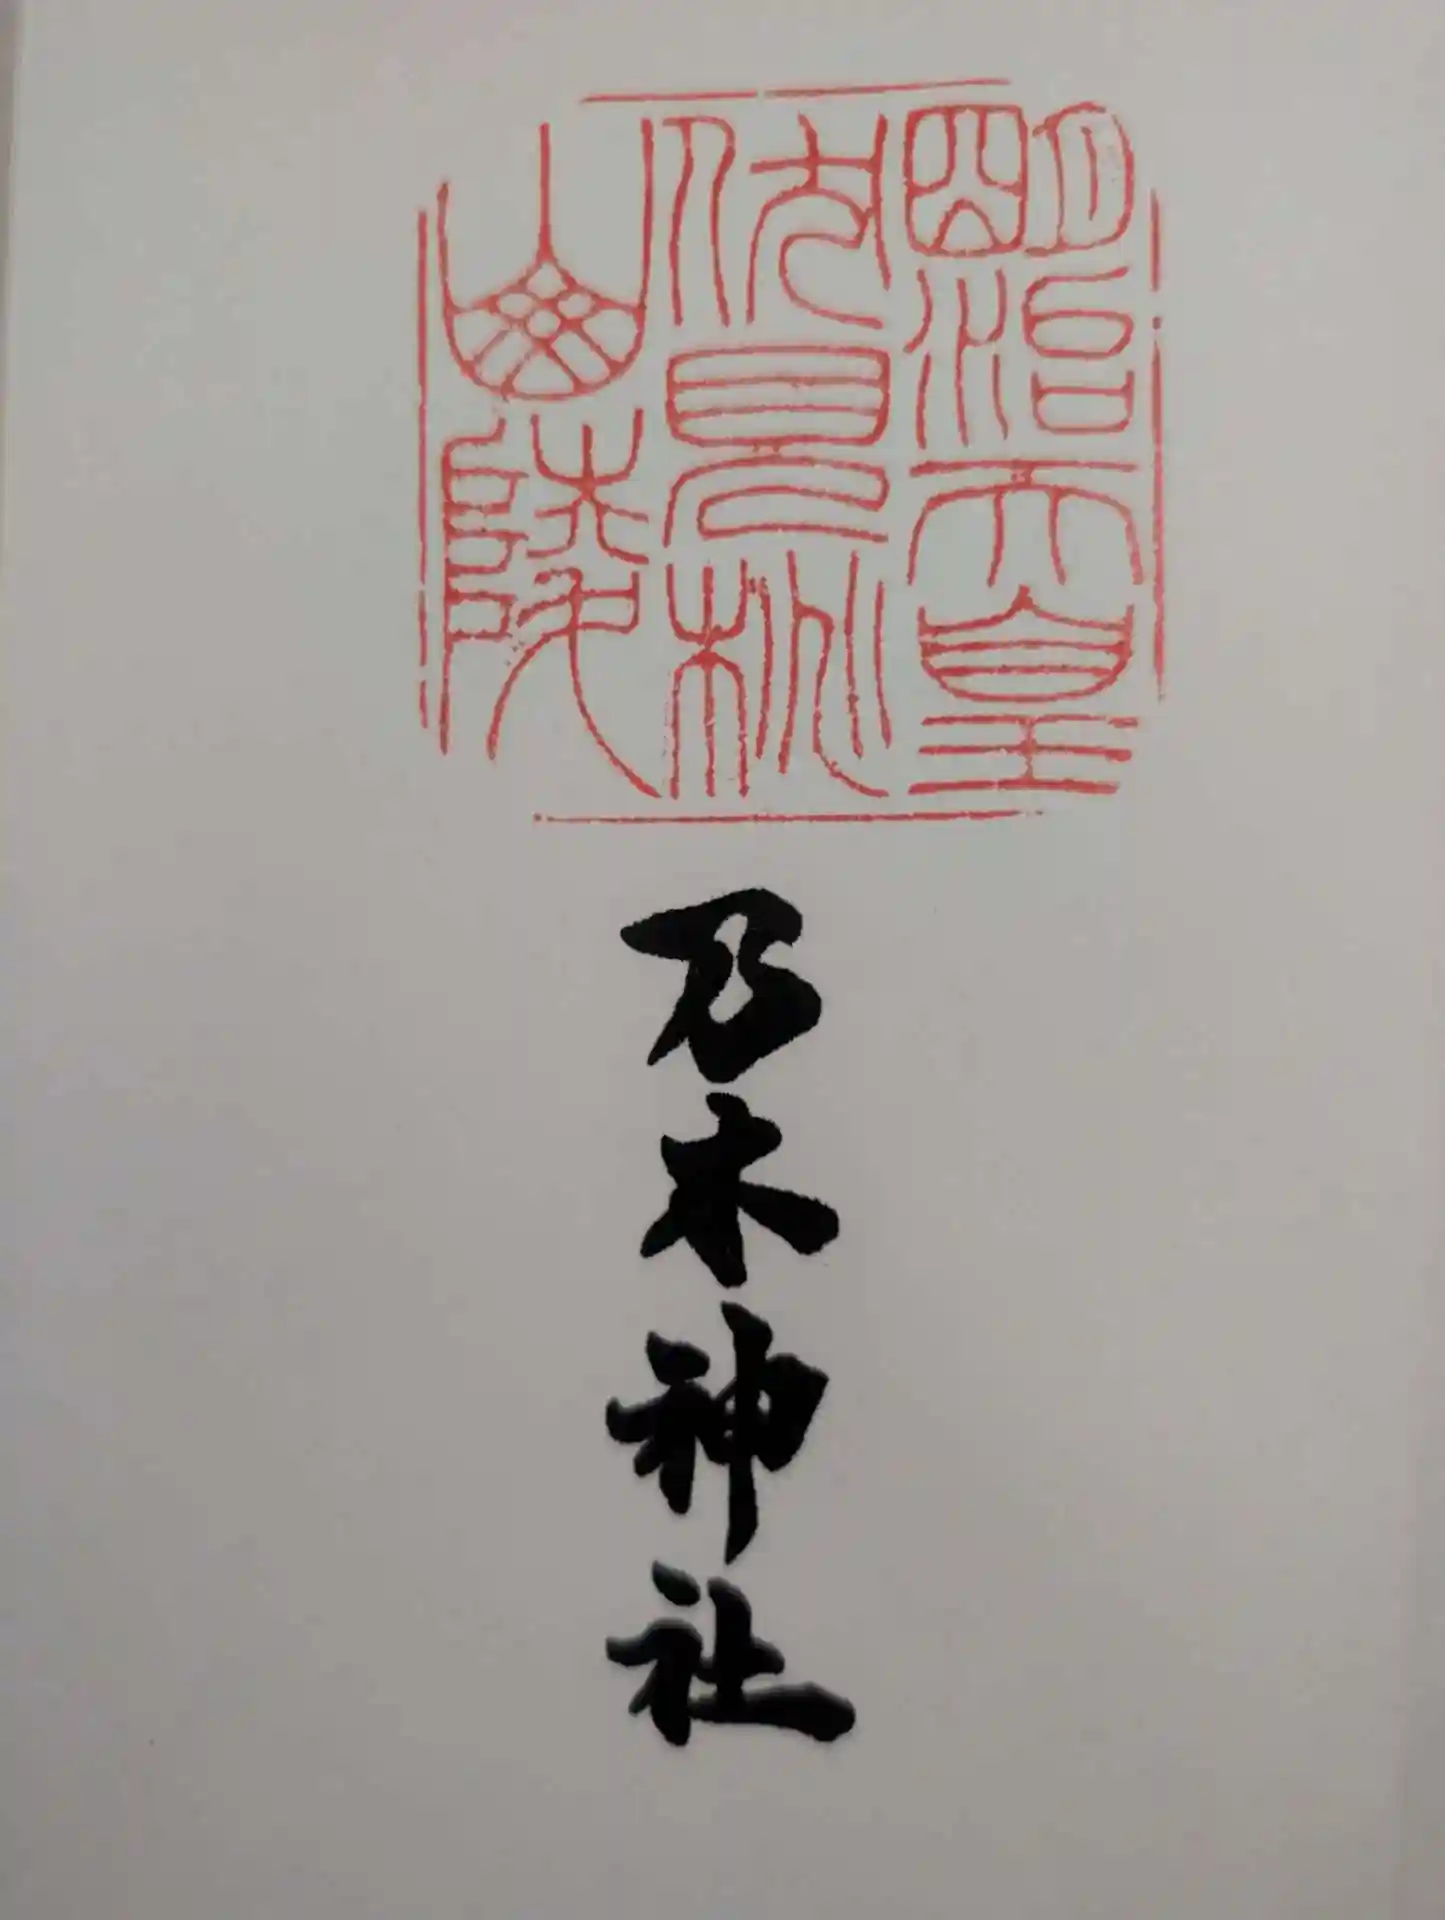 明治天皇
伏見桃
山陵
乃木神社